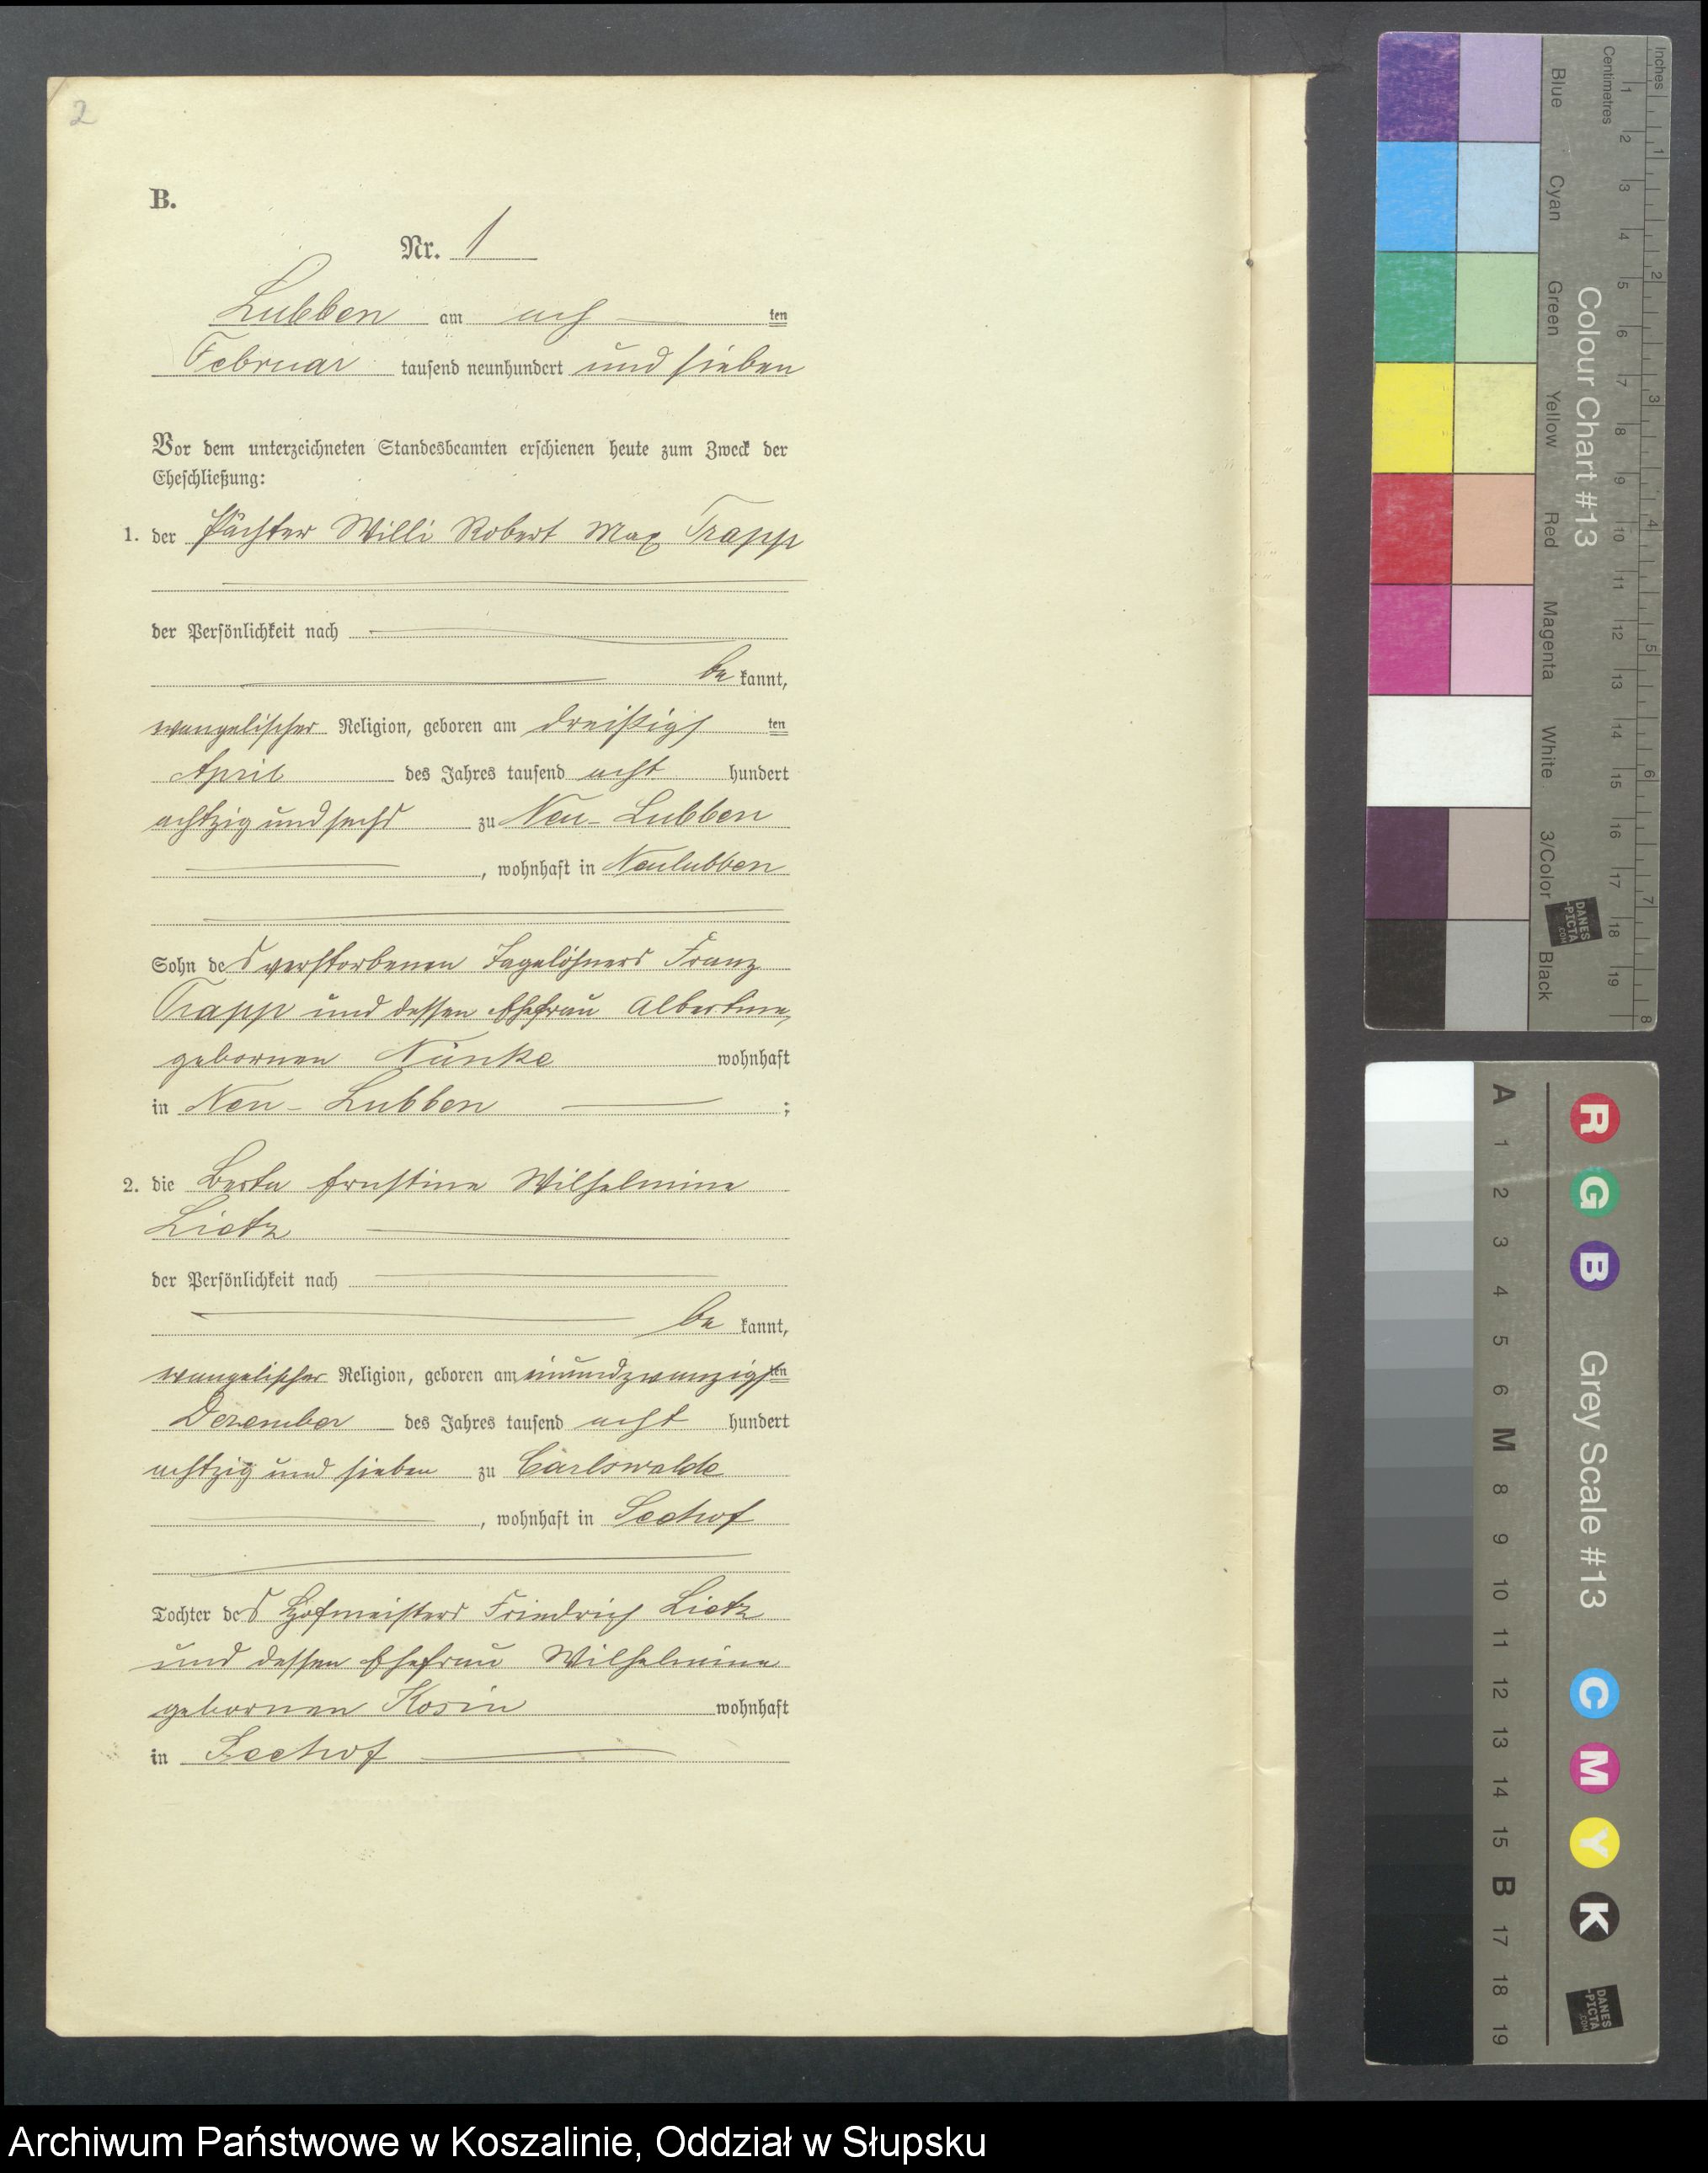 2
B.
Nr. 1
Lubben am ach ten
Februar tausend neunhundert und sieben
Vor dem unterzeichneten Standesbeamten erschienen heute zum Zweck der
Eheschließung:
1. der Pächter Willi Robert Max Trapp
der Persönlichkeit nach
be kannt,
evangelischer Religion, geboren am dreißigs ten
April des Jahres tausend acht hundert
achtzig und sechs zu Neu-Lubben
, wohnhaft in Neulubben
Sohn des verstorbenen Tagelöhners Franz
Trapp und dessen Ehefrau Albertine,
gebornen wohnhaft
in Neu-Lubben ;
2. die Berta Ernstine Wilhelmine
Lietz
der Persönlichkeit nach
be kannt,
evangelischer Religion, geboren am einundzwanzigsten
Dezember des Jahres tausend acht hundert
achtzig und sieben zu Carlswalde
, wohnhaft in Seehof
Tochter des Hofmeisters Friedrich Lietz
und dessen Ehefrau Wilhelmine
gebornen Kosin wohnhaft
in Seehof
Inches
Centimetres
1 2 3 4 5 6 7 8 9 10 11 12 13 14 15 16 17 18 19
1 2 3 4 5 6 7 8
Colour Chart #13
Blue
Cyan
Green
Yellow
Red
Magenta
White
3/Color
Black
DANES
-PICTA
.COM
A 1 2 3 4 5 6 M 8 9 10 11 12 13 14 15 B 17 18 19
R G B
Grey Scale #13
C M Y K
DANES
-PICTA
.COM
Archiwum Państwowe w Koszalinie, Oddział w Słupsku